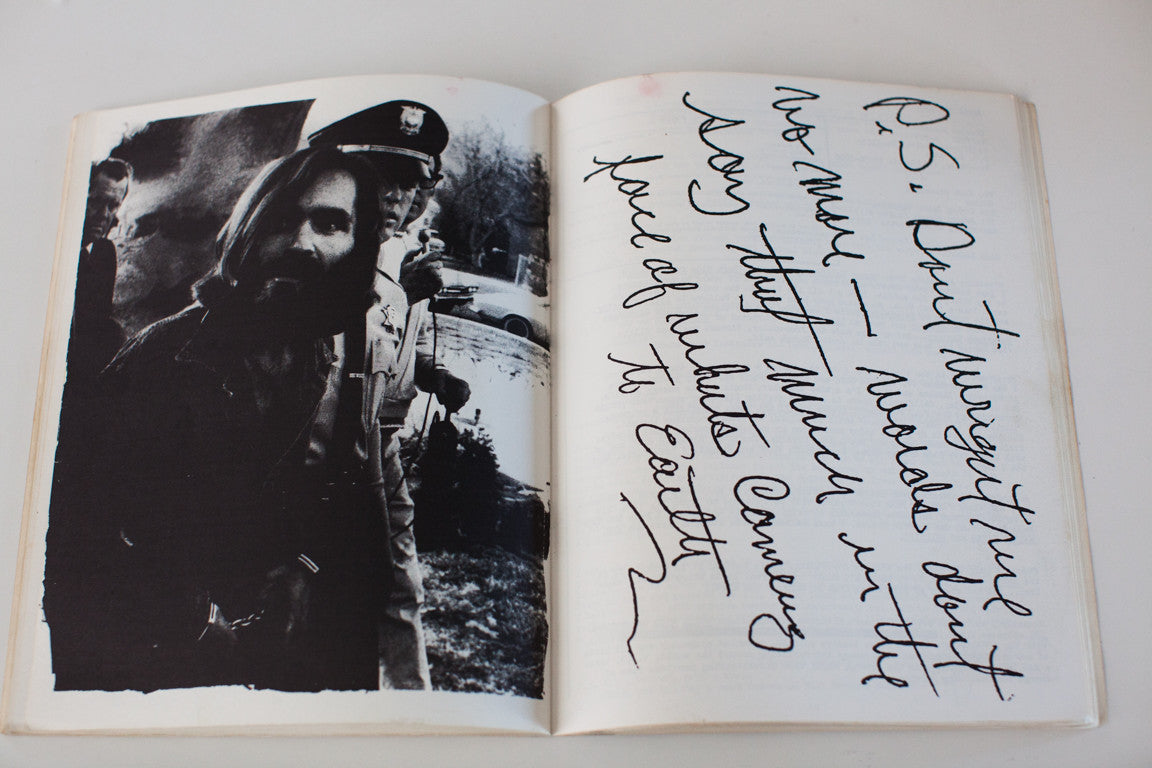 P.S. Dont wright me
no more — words dont
say that much in the
face of whats Comeing
to Earth